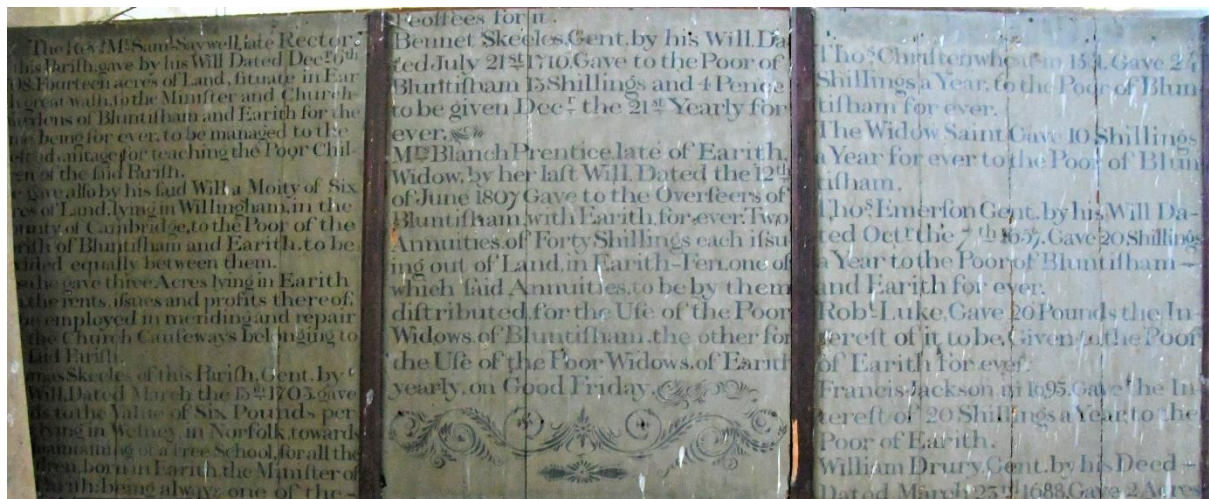 The Revd. Mr. Saml. Saywell, late Rector
this Parish, gave by his Will Dated Decr. 6th
Fourteen acres of Land, situate in Ear
great wash, to the Minister and Church-
of Bluntisham and Earith for the
being for ever, to be managed to the
advantage for teaching the Poor Chil-
of the said Parish.
gave, also by his said Will a Moity of Six
of Land, lying in Willingham, in the
of Cambridge, to the Poor of the
of Bluntisham and Earith, to be
equally between them.
he gave three Acres lying in Earith
the rents, issues and profits thereof,
be employed in mending and repair
the Church Causeways belonging to
said Parish.
Skeeles of this Parish, Gent. by
Will, Dated March the 15th 1703, gave
to the Value of Six Pounds per
lying in in Norfolk, towards
of a free School, for all the
born in Earith, the Minister of
being always one of the-
Feoffees for it.
Bennet Skeeles, Gent. by his Will Da-
ted July 21st 1710, Gave to the Poor of
Bluntisham 13 Shillings and 4 Pence
to be given Decr. the 21st Yearly for
ever.
Mrs. Blanch Prentice, late of Earith,
Widow, by her last Will, Dated the 12th
of June 1807 Gave to the Overseers of
Bluntisham, with Earith, for ever, Two
Annuities, of Forty Shillings each issu
ing out of Land, in Earith-Fen, one of
which said Annuities, to be by them
distributed, for the Use of the Poor
Widows, of Bluntisham, the other for
the Use of the Poor Widows, of Earith
yearly, on Good Friday.
Thos. in Gave 24
Shillings a Year, to the Poor of Blun-
tisham for ever.
The Widow Saint Gave 10 Shillings
a Year for ever to the Poor of Blun
tisham.
Thos. Emerson Gent. by his Will Da-
ted Octr. the 7th 1657, Gave 20 Shillings
a Year to the Poor of Bluntisham -
and Earith for ever.
Robt. Luke, Gave 20 Pounds the In-
terest of it, to be, Given to the Poor
of Earith for ever.
Francis Jackson in 1695, Gave the In
terest of 20 Shillings a Year, to the
Poor of Earith.
William Drury, Gent. by his Deed -
Dated March 25th 1688, Gave 2 Acres